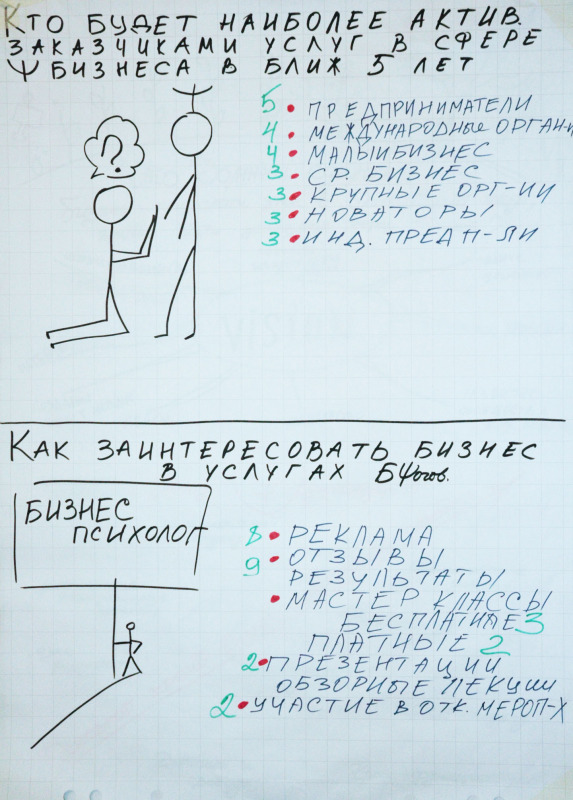 КТО БУДЕТ НАИБОЛЕЕ АКТИВ.
ЗАКАЗЧИКАМИ УСЛУГ В СФЕРЕ
Ψ БИЗНЕСА В БЛИЖ 5 ЛЕТ
?
5 • ПРЕДПРИНИМАТЕЛИ
4 • МЕЖДУНАРОДНЫЕ ОРГАНИ
4 • МАЛЫЙ БИЗНЕС
3 • СР. БИЗНЕС
3 • КРУПНЫЕ ОРГ-ИИ
3 • НОВАТОРЫ
3 • ИНД. ПРЕДП-ЛИ
КАК ЗАИНТЕРЕСОВАТЬ БИЗНЕС
В УСЛУГАХ БΨогов.
БИЗНЕС
ПСИХОЛОГ
8 • РЕКЛАМА
9 • ОТЗЫВЫ
РЕЗУЛЬТАТЫ
• МАСТЕР КЛАССЫ
БЕСПЛАТНЫЕ 3
ПЛАТНЫЕ 2
2 • ПРЕЗЕНТАЦИИ
ОБЗОРНЫЕ ЛЕКЦИИ
2 • УЧАСТИЕ В ОТК. МЕРОП-Х